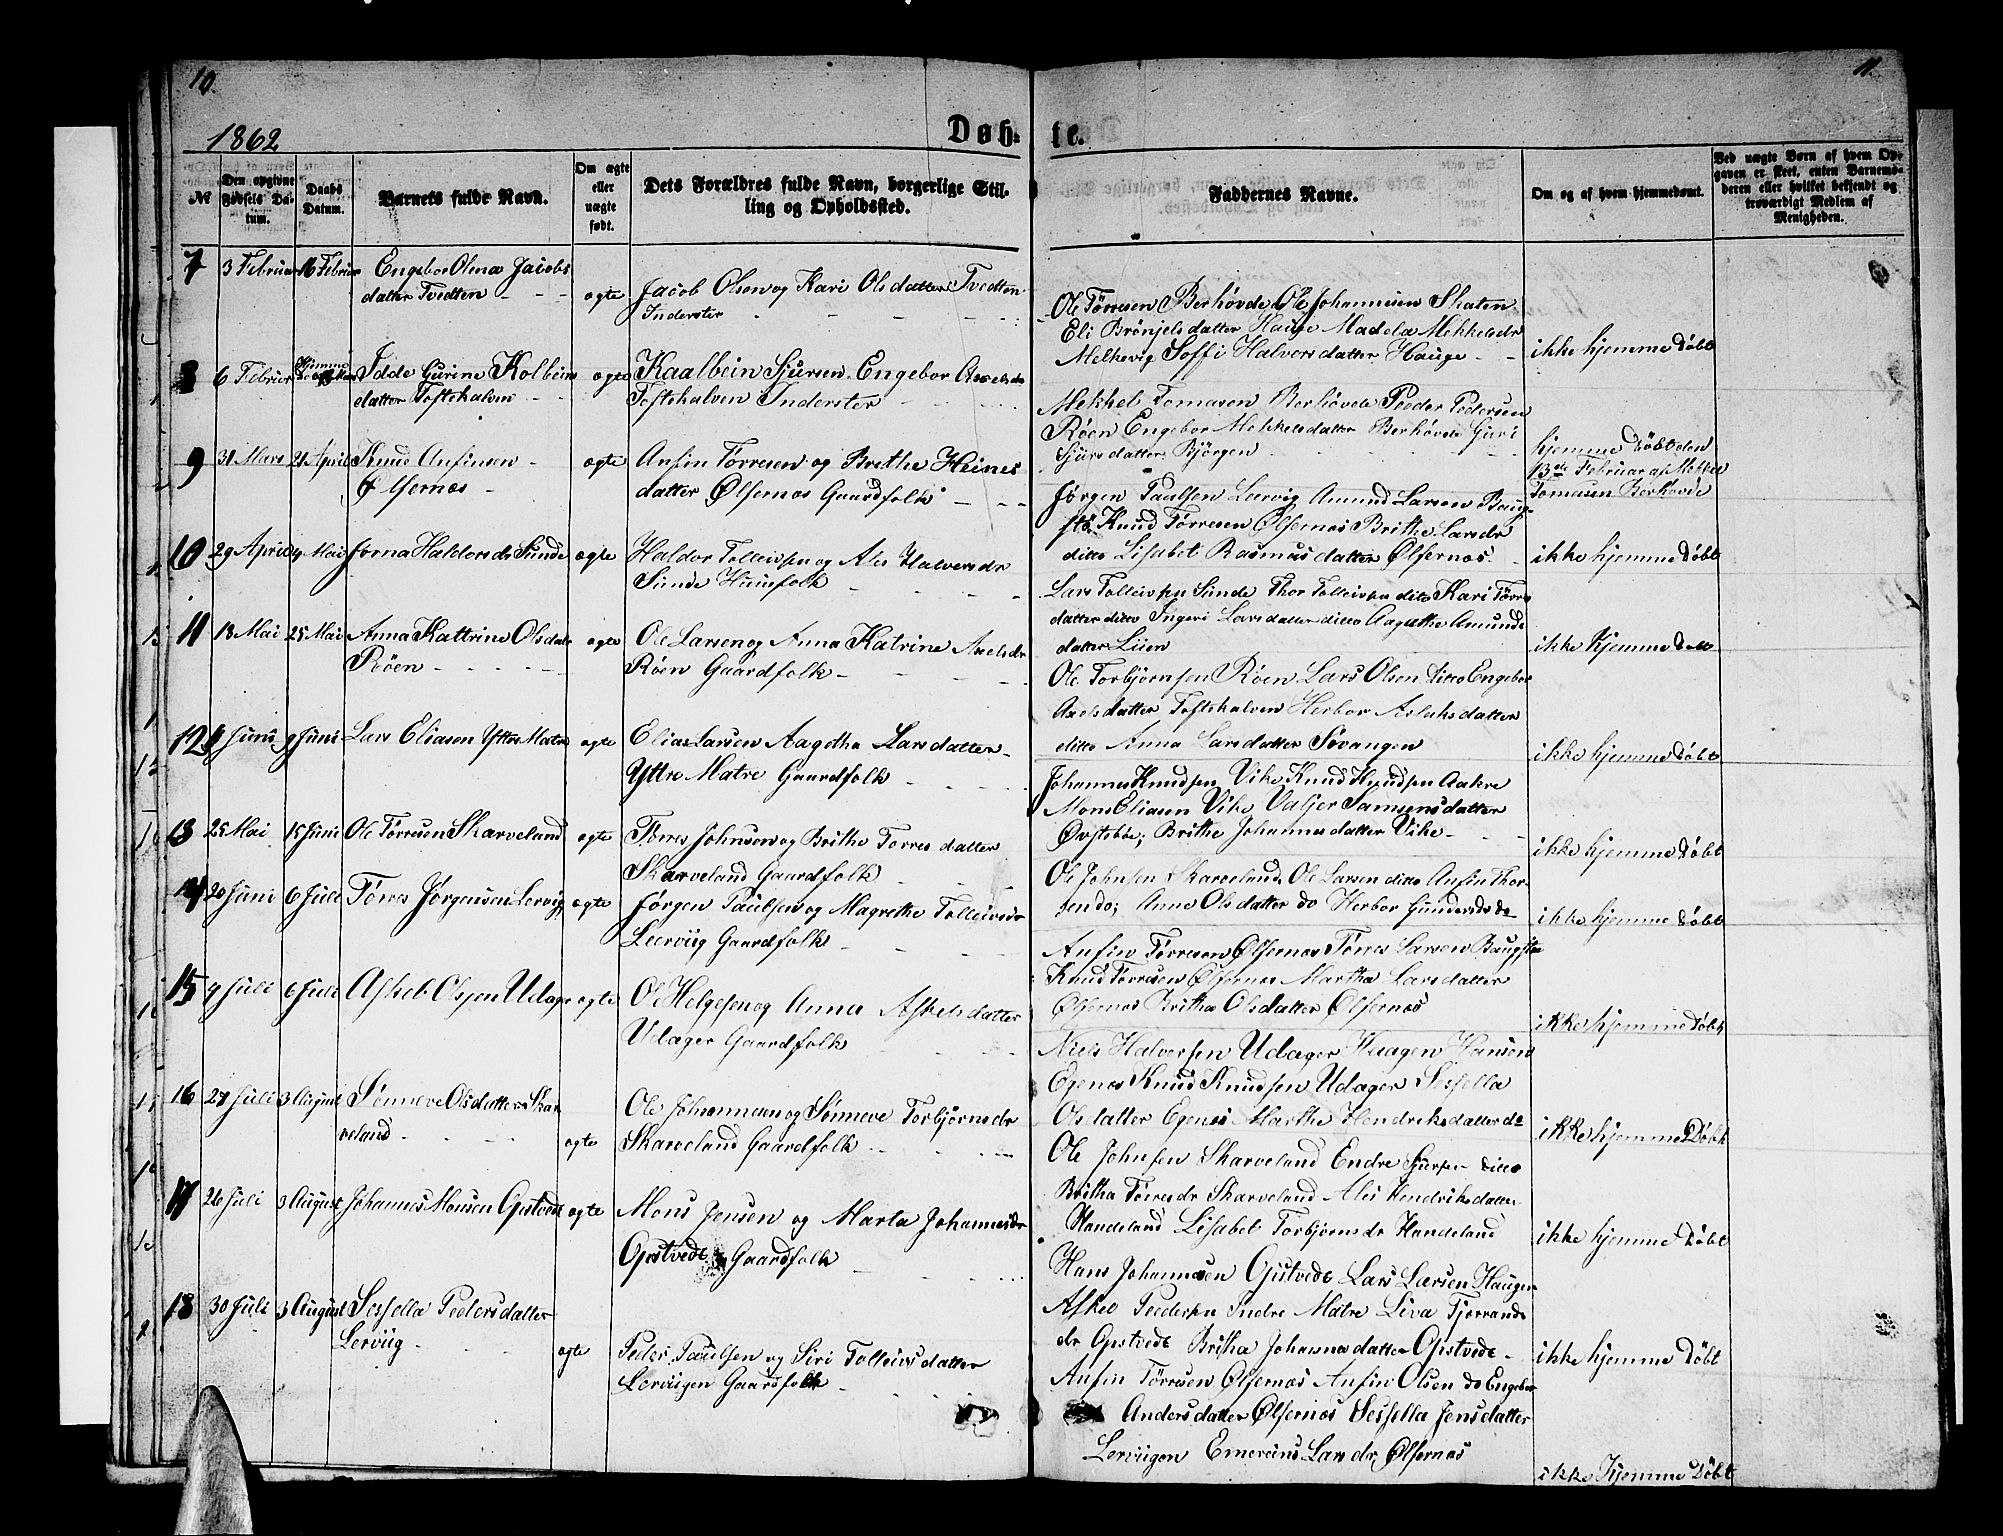 10.
11.
1862
Døb-
te.
№
Den opgivne Fødsels Datum.
Daabs Datum.
Barnets fulde Navn.
Om ægte eller uægte født.
Dets Forældres fulde Navn, borgerlige Stilling og Opholdssted.
Faddernes Navne.
Om og af hvem hjemmedøbt.
Ved uægte Børn af hvem Opgaven er skeet, enten Barnemoderen eller hvilket bekjendt og troværdigt Medlem af Menigheden.
7 3 Februar 16 Februar Engebor Olena Jacobs
datter Tvedten - - -
ægte Jacob Olsen og Kari Olsdatter Tvedten
Inderster
Ole Tørresen Berhøvde Ole Johannesen Skaten
Eli Brönjelsdatter Hauge Madela Mekkelsdr
Melkevig Soffi Halversdatter Hauge - -
ikke hjemme Döbt
8 6 Februar Hjemme
Idde Gurine Kolbeins
datter Toftehalven - -
ægte Kaalbein Sjursen Engebor Axelsdr
Toftehalven Inderster
Mekkel Tomasen Berhövde Peder Pedersen
Röen Engebor Mekkelsdatter Berhövde Guri
Sjursdatter Björgen
hjemme Döbt den
13de Februar af Mekkel
Tomasen Berhövde
9 31 Mars 21 April Knud Anfinsen -
Ølfernæs -
ægte Anfin Törresen og Brithe Heines
datter Ølfernæs Gaardfolk - - -
Jörgen Paalsen Lærvig Amund Larsen Baug-
stö Knud Törresen Ølfernæs Brithe Larsdr
ditto Lisabet Rasmusdatter Ølfernæs
ikke hjemme Döbt
10 29 April 4 Mai Jorna Haldorsdr Sunde
ægte Haldor Tolleivsen og Ales Halversdr
Sunde Huusfolk
Lars Tolleivsen Sunde Thor Tolleivsen ditto Kari Törres
datter ditto Ingeri Larsdatter ditto Aagathe Amunds
datter Liien
ikke hjemme Döbt
11 18 Mai 25 Mai Anna Kattrine Olsdatr
Röen
ægte Ole Larsen og Anna Katrine Axelsdr
Röen Gaardfolk -
Ole Torbjörnsen Röen Lars Olsen Ditto Engebor
Axelsdatter Toftehalven Herbor Aslaksdatter
ditto Anna Larsdatter Sövangen
ikke hjemme Döbt
12 4 Juni 9 Juni Lars Eliasen Yttre Matre
ægte Elias Larsen Aagotha Larsdatter
Yttre Matre Gaardfolk
Johannes Knudsen Vike Knud Knudsen Aakre
Mons Eliasen Vike Valjer Samsensdatter
Øvstebøe, Brithe Johannesdatter Vike
ikke hjemme Döbt
13 25 Mai 15 Juni Ole Törresen Skarveland
ægte Törres Johnsen og Brithe Torresdatter
Skarveland Gaardfolk
Ole Johnsen Skarveland Ole Larsen ditto Anfin Thor-
sen do; Anne Olsdatter do Herbor Gundersdr do
ikke hjemme Döbt
14 20 Juni 6 Juli Törres Jørgensen Lervig
ægte Jørgen Paulsen og Magrethe Tolleivsdr
Leerviig Gaardfolk
Anfin Törresen Ølfernæs Törres Larsen Baugstø
Knud Törresen Ølfernæs Martha Larsdatter
Ølfernæs Britha Olsdatter Ølfernæs
ikke hjemme Döbt
15 4 Juli 6 Juli Askel Olsen Udager
ægte Ole Helgesen og Anna Askelsdatter
Udager Gaardfolk
Niels Halversen Udager Haagen Hansen
Egenæs Knud Knudsen Udager Sessella
Olsdatter Egenæs Marthe Hendriksdatter do
ikke hjemme Döbt
16 27 Juli 3 August Sönneve Olsdatter Skar
veland
ægte Ole Johannesen og Sönneve Torbjörnsdr
Skarveland Gaardfolk
Ole Johnsen Skarveland Endre Sjursen ditto
Britha Törresdr Skarveland Ales Hendriksdatter
Handeland Lisabet Torbjörnsdr Handeland
ikke hjemme Döbt
17 26 Juli 3 August Johannes Monsen Opstvedt
ægte Mons Jensen og Marta Johannesdr
Opstvedt Gaardfolk
Hans Johannesen Opstvedt Lars Larsen Haugen
Askel Pedersen Indre Matre Liva Tjerrands
dr Opstvedt Britha Johannesdatter Opstvedt
ikke hjemme Döbt
18 30 Juli 3 August Sessella Pedersdatter
Lerviig
ægte Peder Paulsen og Siri Tolleivsdatter
Lerviigen Gaardfolk
Anfin Törresen Ølfernæs Anfin Olsen do Engebor
Andersdatter Ølfernæs Sessella Jensdatter
Lerviigen Emerens Larsdr, Ølfernæs
ikke hjemme Döbt